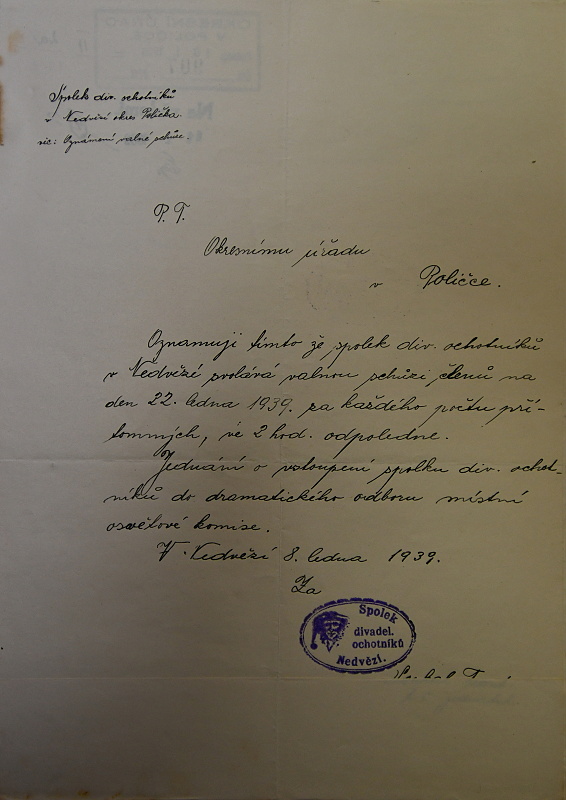 Spolek div. ochotníků
v Nedvězí okres Polička.
věc: Oznámení valné schůze.
P. T.
Okresnímu úřadu
v Poličce.
Oznamuji tímto že spolek div. ochotníků
v Nedvězí svolává valnou schůzi členů na
den 22. ledna 1939. za každého počtu pří-
tomných, ve 2 hod. odpoledne.
Jednání o vstoupení spolku div. ochot-
níků do dramatického odboru místní
osvětové komise.
V Nedvězí 8. ledna 1939.
Za
Spolek
divadel.
ochotníků
Nedvězí.